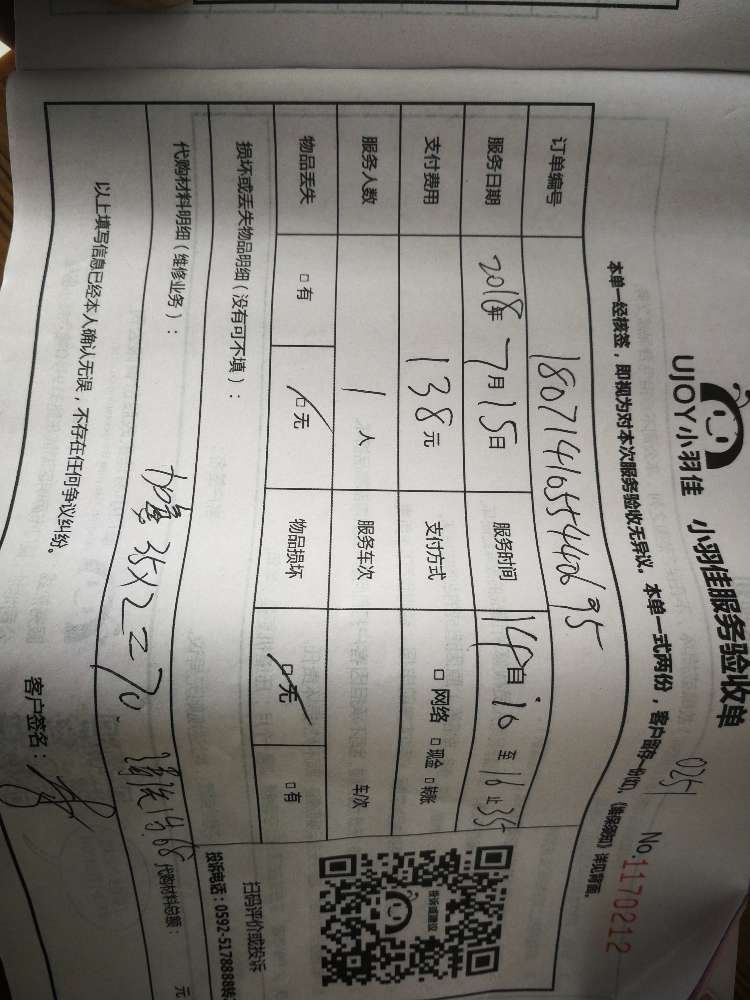 UJOY小羽佳 小羽佳服务验收单
0251 No.1170212
本单一经核签，即视为对本次服务验收无异议。本单一式两份，客户留存一份，《维保须知》详见背面。
订单编号
服务日期 2018年7月15日 服务时间 14自:10至16止35
支付费用 138元 支付方式 □网络 □现金 □转账
服务人数 1人 服务车次 车/次
物品丢失 □有 □无 物品损坏 □无 □有
损坏或丢失物品明细（没有可不填）：
代购材料明细（维修业务）： 35X2=70.
代购材料总额： 元
以上填写信息已经本人确认无误，不存在任何争议纠纷。
客户签名：
告诉或建议
扫码评价或投诉
投诉电话：0592-5178888转